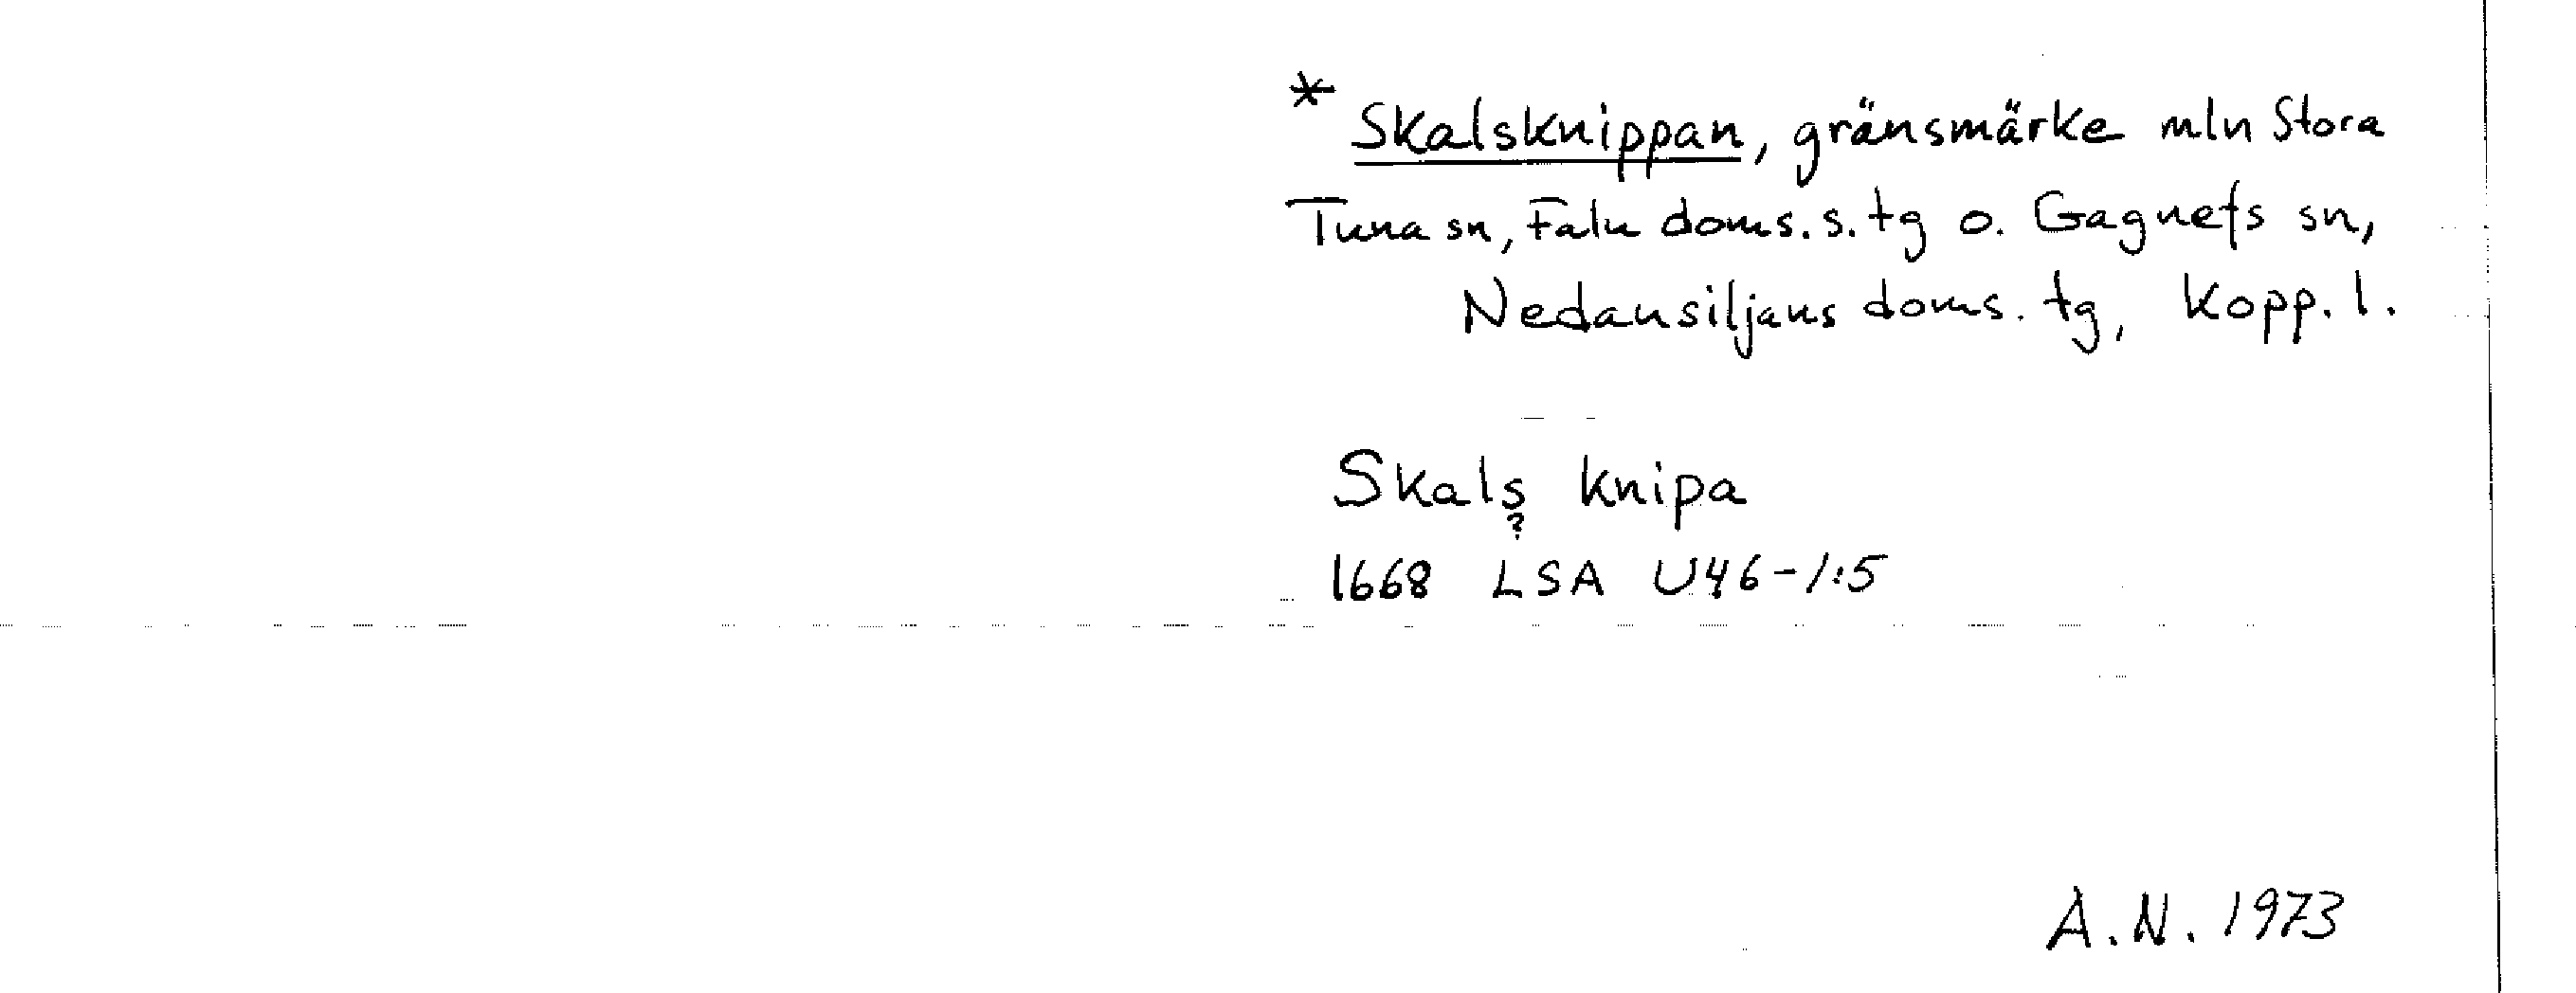 * Skalsknippan, gränsmärke mln Stora
Tuna sn, Falu doms.s. tg o. Gagnefs sn,
Nedansiljans doms. tg, Kopp. l.
Skals knipa
?
1668 LSA U46-1:5
A.N. 1973